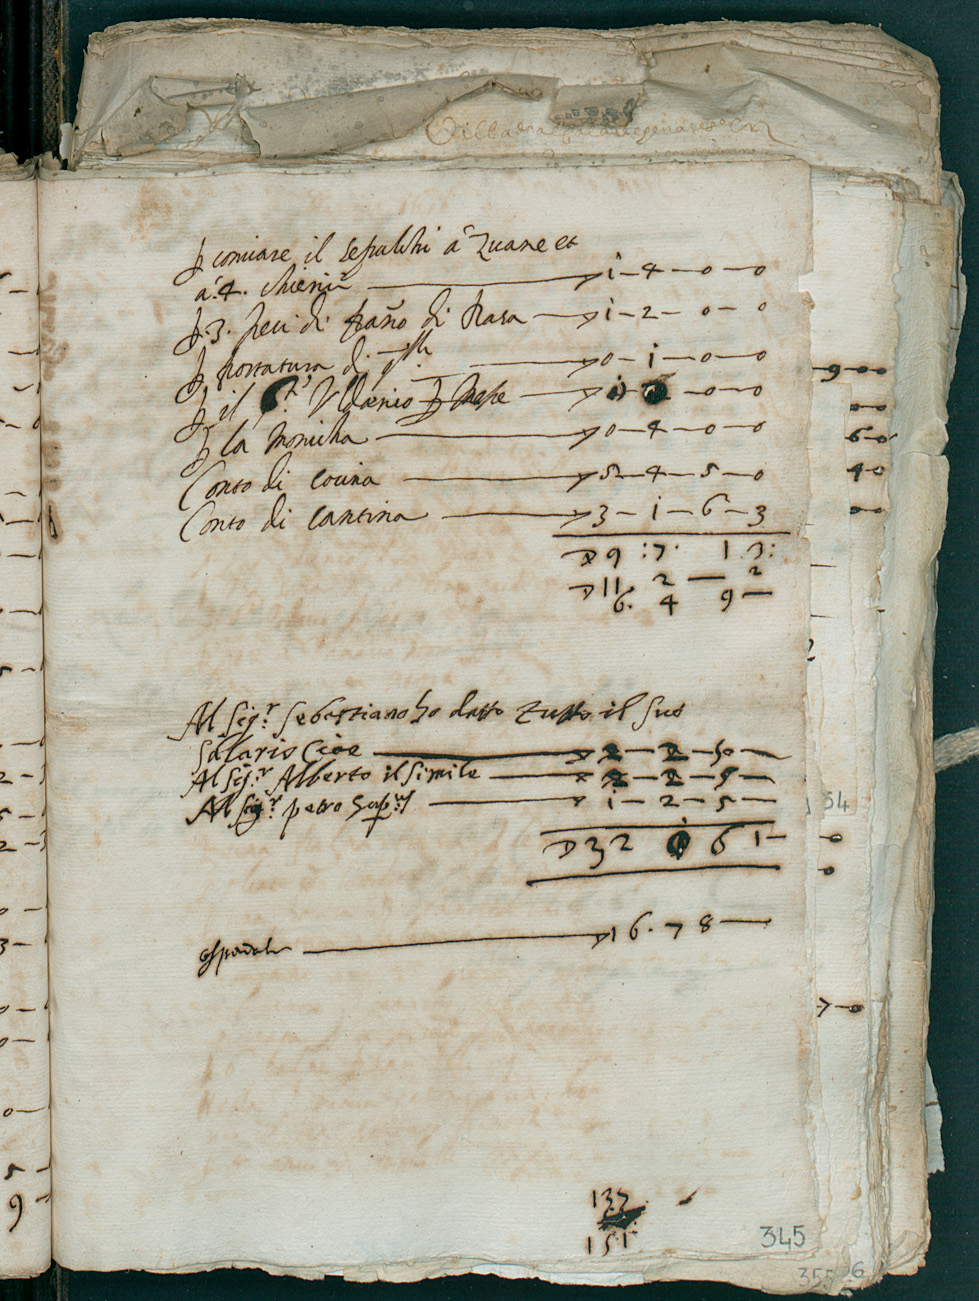 ꝑ conciare il sepulchi à Zuane et
à .4. chierici 1 - 4 - 0 - 0
ꝑ .3. peci di pano di Rasa 1 - 2 - 0 - 0
ꝑ portatura di 0 - 1 - 0 - 0
ꝑ il Pre Uldario ꝑ Messe 0 - 0
ꝑ la Monicha 0 - 4 - 0 - 0
Conto di Cocina 5 - 4 - 5 - 0
Conto di Cantina 3 - 1 - 6 - 3
D 9 : 7 · 1 3 :
D 11 2 — 2
6. 4 9 —
Al Sigr. Sebastiano ho datto tutto il suo
Salario Cioe 2 - 2 - 50 -
Al Sigr. Alberto il simile 2 - 2 - 5 -
Al Sigr petro 1 - 2 - 5 -
D 32 6 1 -
16 . 7 8 —
137
151
345